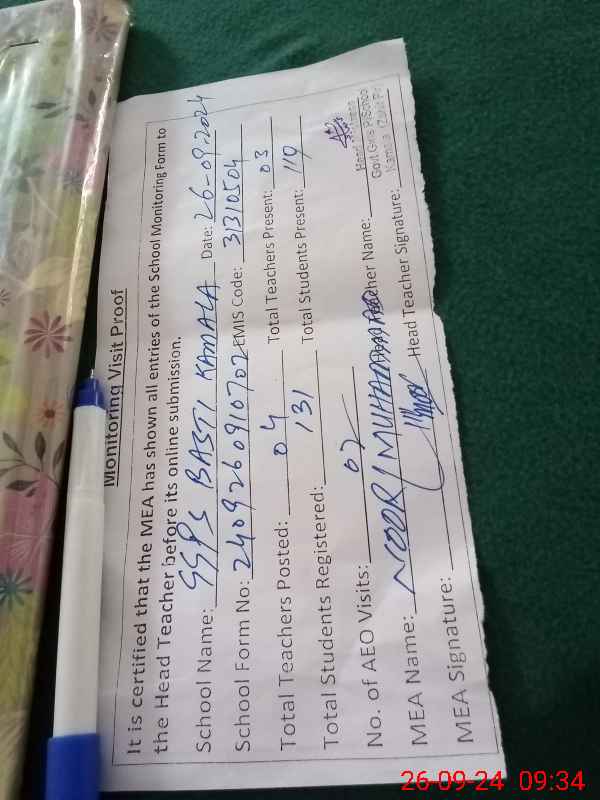 Monitoring Visit Proof
It is certified that the MEA has shown all entries of the School Monitoring Form to
the Head Teacher before its online submission.
School Name: GGPS BASTI KAMALA Date: 26-09-2024
School Form No: 2409260910702 EMIS Code: 31310504
Total Teachers Posted: 04 Total Teachers Present: 03
Total Students Registered: 131 Total Students Present: 119
No. of AEO Visits: 02
MEA Name: NOOR MUHAMMAD Teacher Name:
MEA Signature: Head Teacher Signature:
Govt Girls
26-09-24 09:34